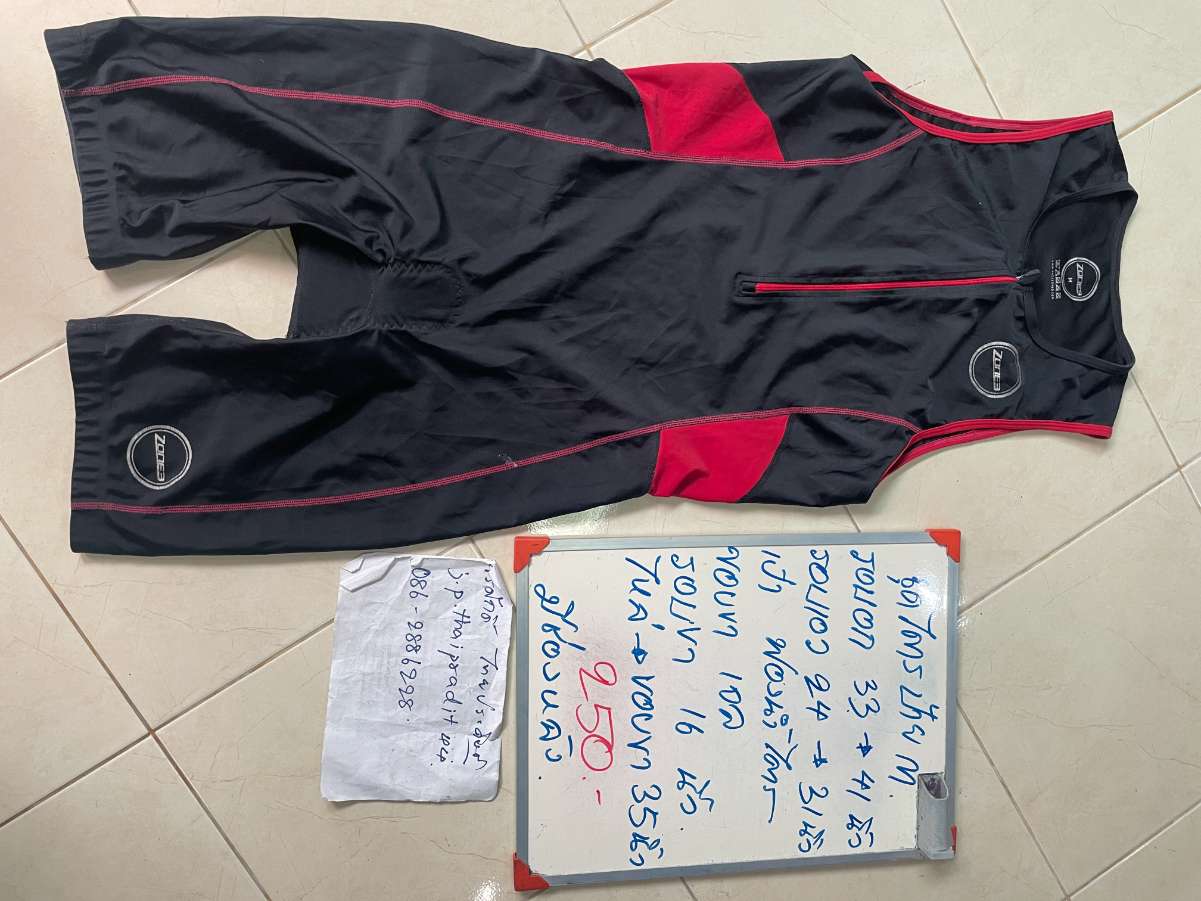 ZONE3
M
ZONE3
ZONE3
ชุดไตรป้าย M
รอบอก 33 → 41 นิ้ว
รอบเอว 24 → 31 นิ้ว
เป้า ฟองน้ำไตร
ขอบขา เจล
รอบขา 16 นิ้ว
ไหล่ → ขอบขา 35 นิ้ว
250.-
มีช่องหลัง
ไทยประดิษฐ์
j.p.thaipradit
086-2886298.